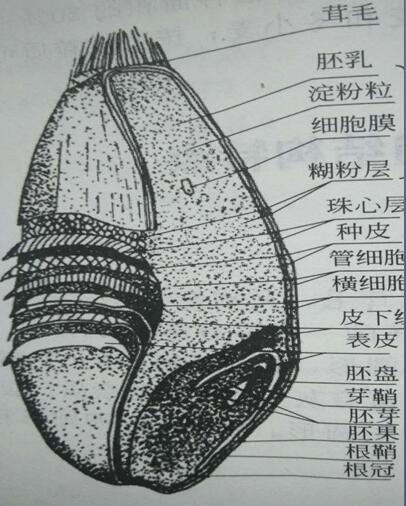 茸毛
胚乳
淀粉粒
细胞膜
糊粉层
珠心层
种皮
管细胞
横细胞
皮下
表皮
胚盘
芽鞘
胚芽
胚果
根鞘
根冠